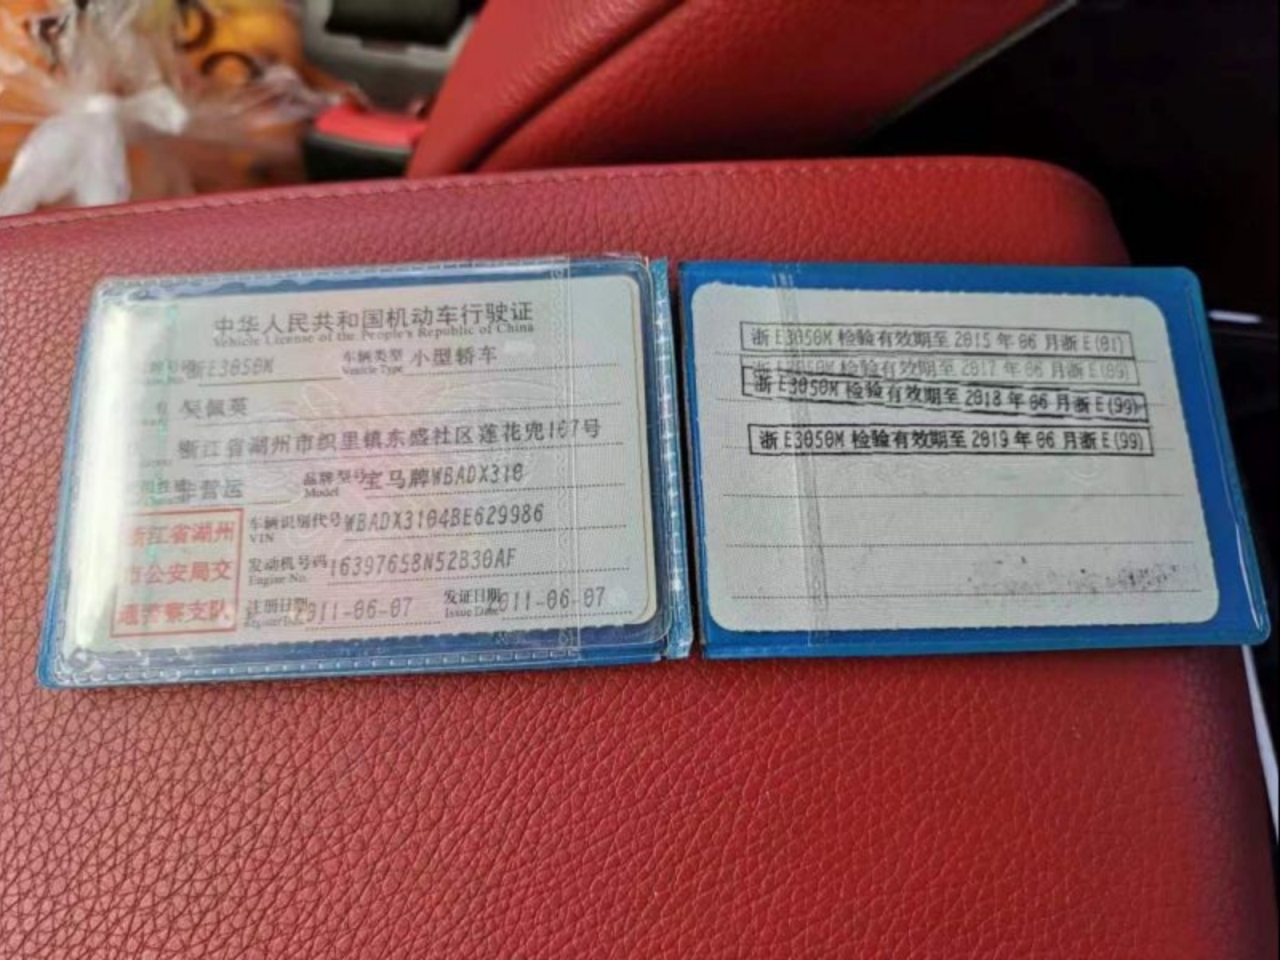 中华人民共和国机动车行驶证
Vehicle License of the People's Republic of China
浙E3050M 车辆类型 小型轿车
Vehicle Type
吴佩英
浙江省湖州市织里镇东盛社区莲花兜167号
非营运 品牌型号 宝马牌WBADX310
Model
浙江省湖州
市公安局交
通警察支队
车辆识别代号 WBADX3104BE629986
VIN
发动机号码 16397658N52B30AF
Engine No.
注册日期 2011-06-07 发证日期 2011-06-07
Register Date Issue Date
浙E3050M 检验有效期至 2015 年 06 月浙E(01)
浙E3050M 检验有效期至 2017 年 06 月浙E(99)
浙E3050M 检验有效期至 2018 年 06 月浙E(99)
浙E3050M 检验有效期至 2019 年 06 月浙E(99)